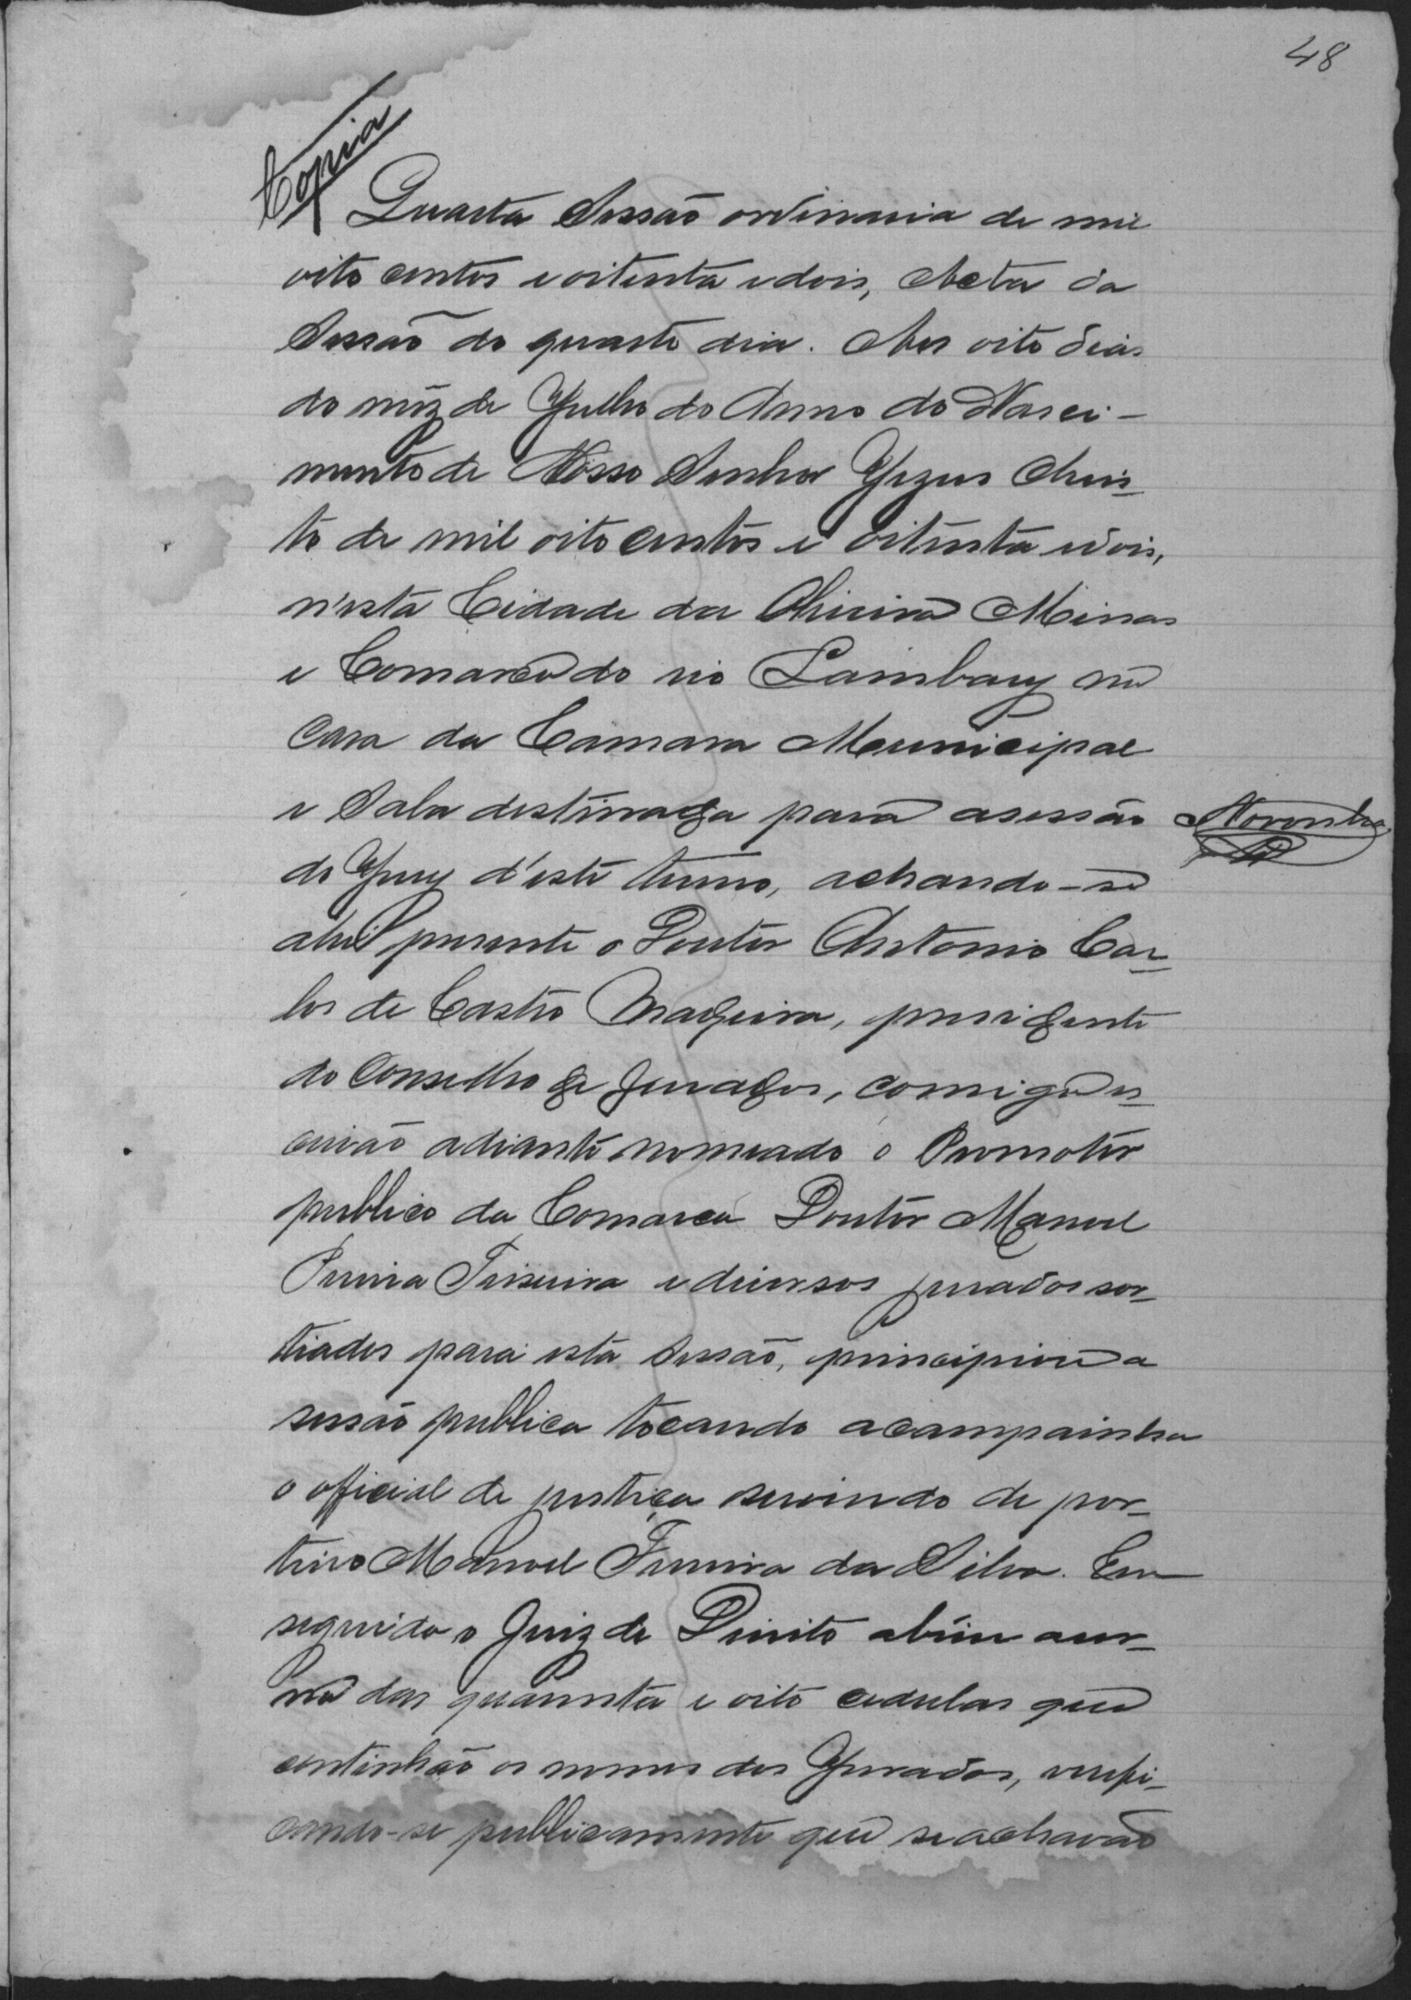 48
Copia
Quarta Sessão ordinaria de mil
oito centos e oitenta e dois, Acta da
Sessão do quarto dia. Aos oito dias
do mez de Julho do Anno do Nasci-
mento de Nosso Senhor Jezus Chris-
to de mil oito centos e oitenta e dois,
n'esta Cidade da Oliveira Minas
e Comarca do rio Lambary na
Casa da Camara Municipal
e Sala destinada para a sessão
do Jury d'este termo, achando-se
ahi presente o Doutor Antonio Car-
los de Castro Madeira, presidente
do Conselho de Jurados, comigo es-
crivão adiante nomeado o Promotor
publico da Comarca Doutor Manoel
Teixeira e diversos jurados sor-
tiados para esta Sessão, principiou a
sessão publica tocando a campainha
o official de justiça servindo de por-
teiro Manoel Ferreira da Silva. Em
seguida o Juiz de Direito abriu a ur-
na das quarenta e oito cedulas que
continhão os nomes dos Jurados, verifi-
cando-se publicamente que se achavão